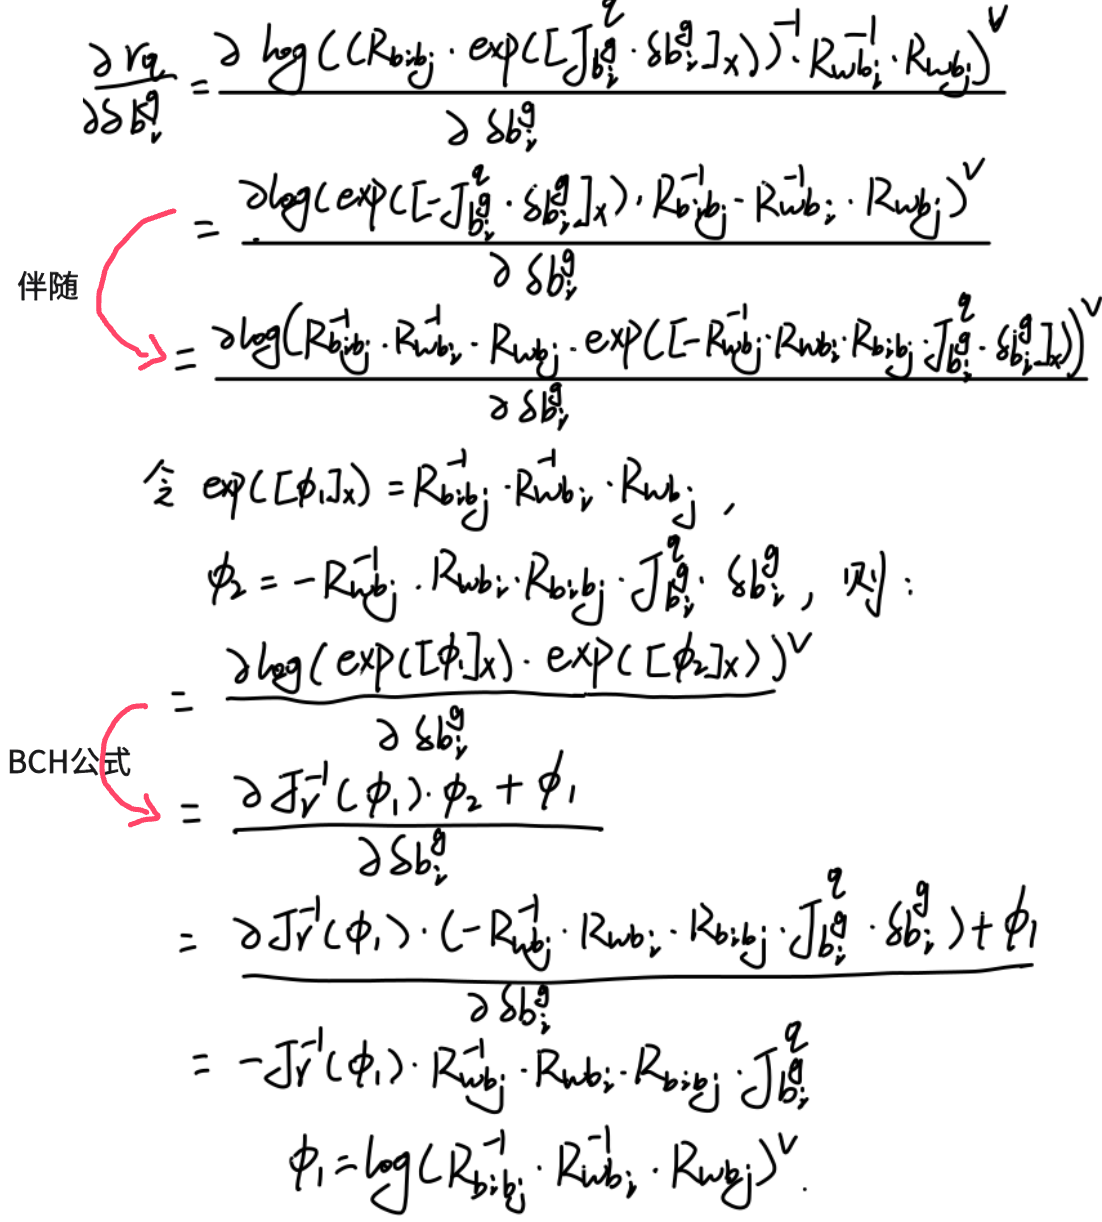 ∂r_q / ∂δb_i^g = ∂ log((R_{b_i b_j} · exp([J_{b_i^g}^q · δb_i^g]_×))^{-1} · R_{wb_i}^{-1} · R_{wb_j})^∨ / ∂δb_i^g
= ∂log(exp([-J_{b_i^g}^q · δb_i^g]_×) · R_{b_i b_j}^{-1} · R_{wb_i}^{-1} · R_{wb_j})^∨ / ∂δb_i^g
伴随
= ∂log(R_{b_i b_j}^{-1} · R_{wb_i}^{-1} · R_{wb_j} · exp([-R_{wb_j}^{-1} · R_{wb_i} · R_{b_i b_j} · J_{b_i^g}^q · δb_i^g]_×))^∨ / ∂δb_i^g
令 exp([ϕ_1]_×) = R_{b_i b_j}^{-1} · R_{wb_i}^{-1} · R_{wb_j} ,
ϕ_2 = -R_{wb_j}^{-1} · R_{wb_i} · R_{b_i b_j} · J_{b_i^g}^q · δb_i^g , 则 :
= ∂log(exp([ϕ_1]_×) · exp([ϕ_2]_×))^∨ / ∂δb_i^g
BCH公式
= ∂J_r^{-1}(ϕ_1) · ϕ_2 + ϕ_1 / ∂δb_i^g
= ∂J_r^{-1}(ϕ_1) · (-R_{wb_j}^{-1} · R_{wb_i} · R_{b_i b_j} · J_{b_i^g}^q · δb_i^g) + ϕ_1 / ∂δb_i^g
= -J_r^{-1}(ϕ_1) · R_{wb_j}^{-1} · R_{wb_i} · R_{b_i b_j} · J_{b_i^g}^q
ϕ_1 = log(R_{b_i b_j}^{-1} · R_{wb_i}^{-1} · R_{wb_j})^∨ .